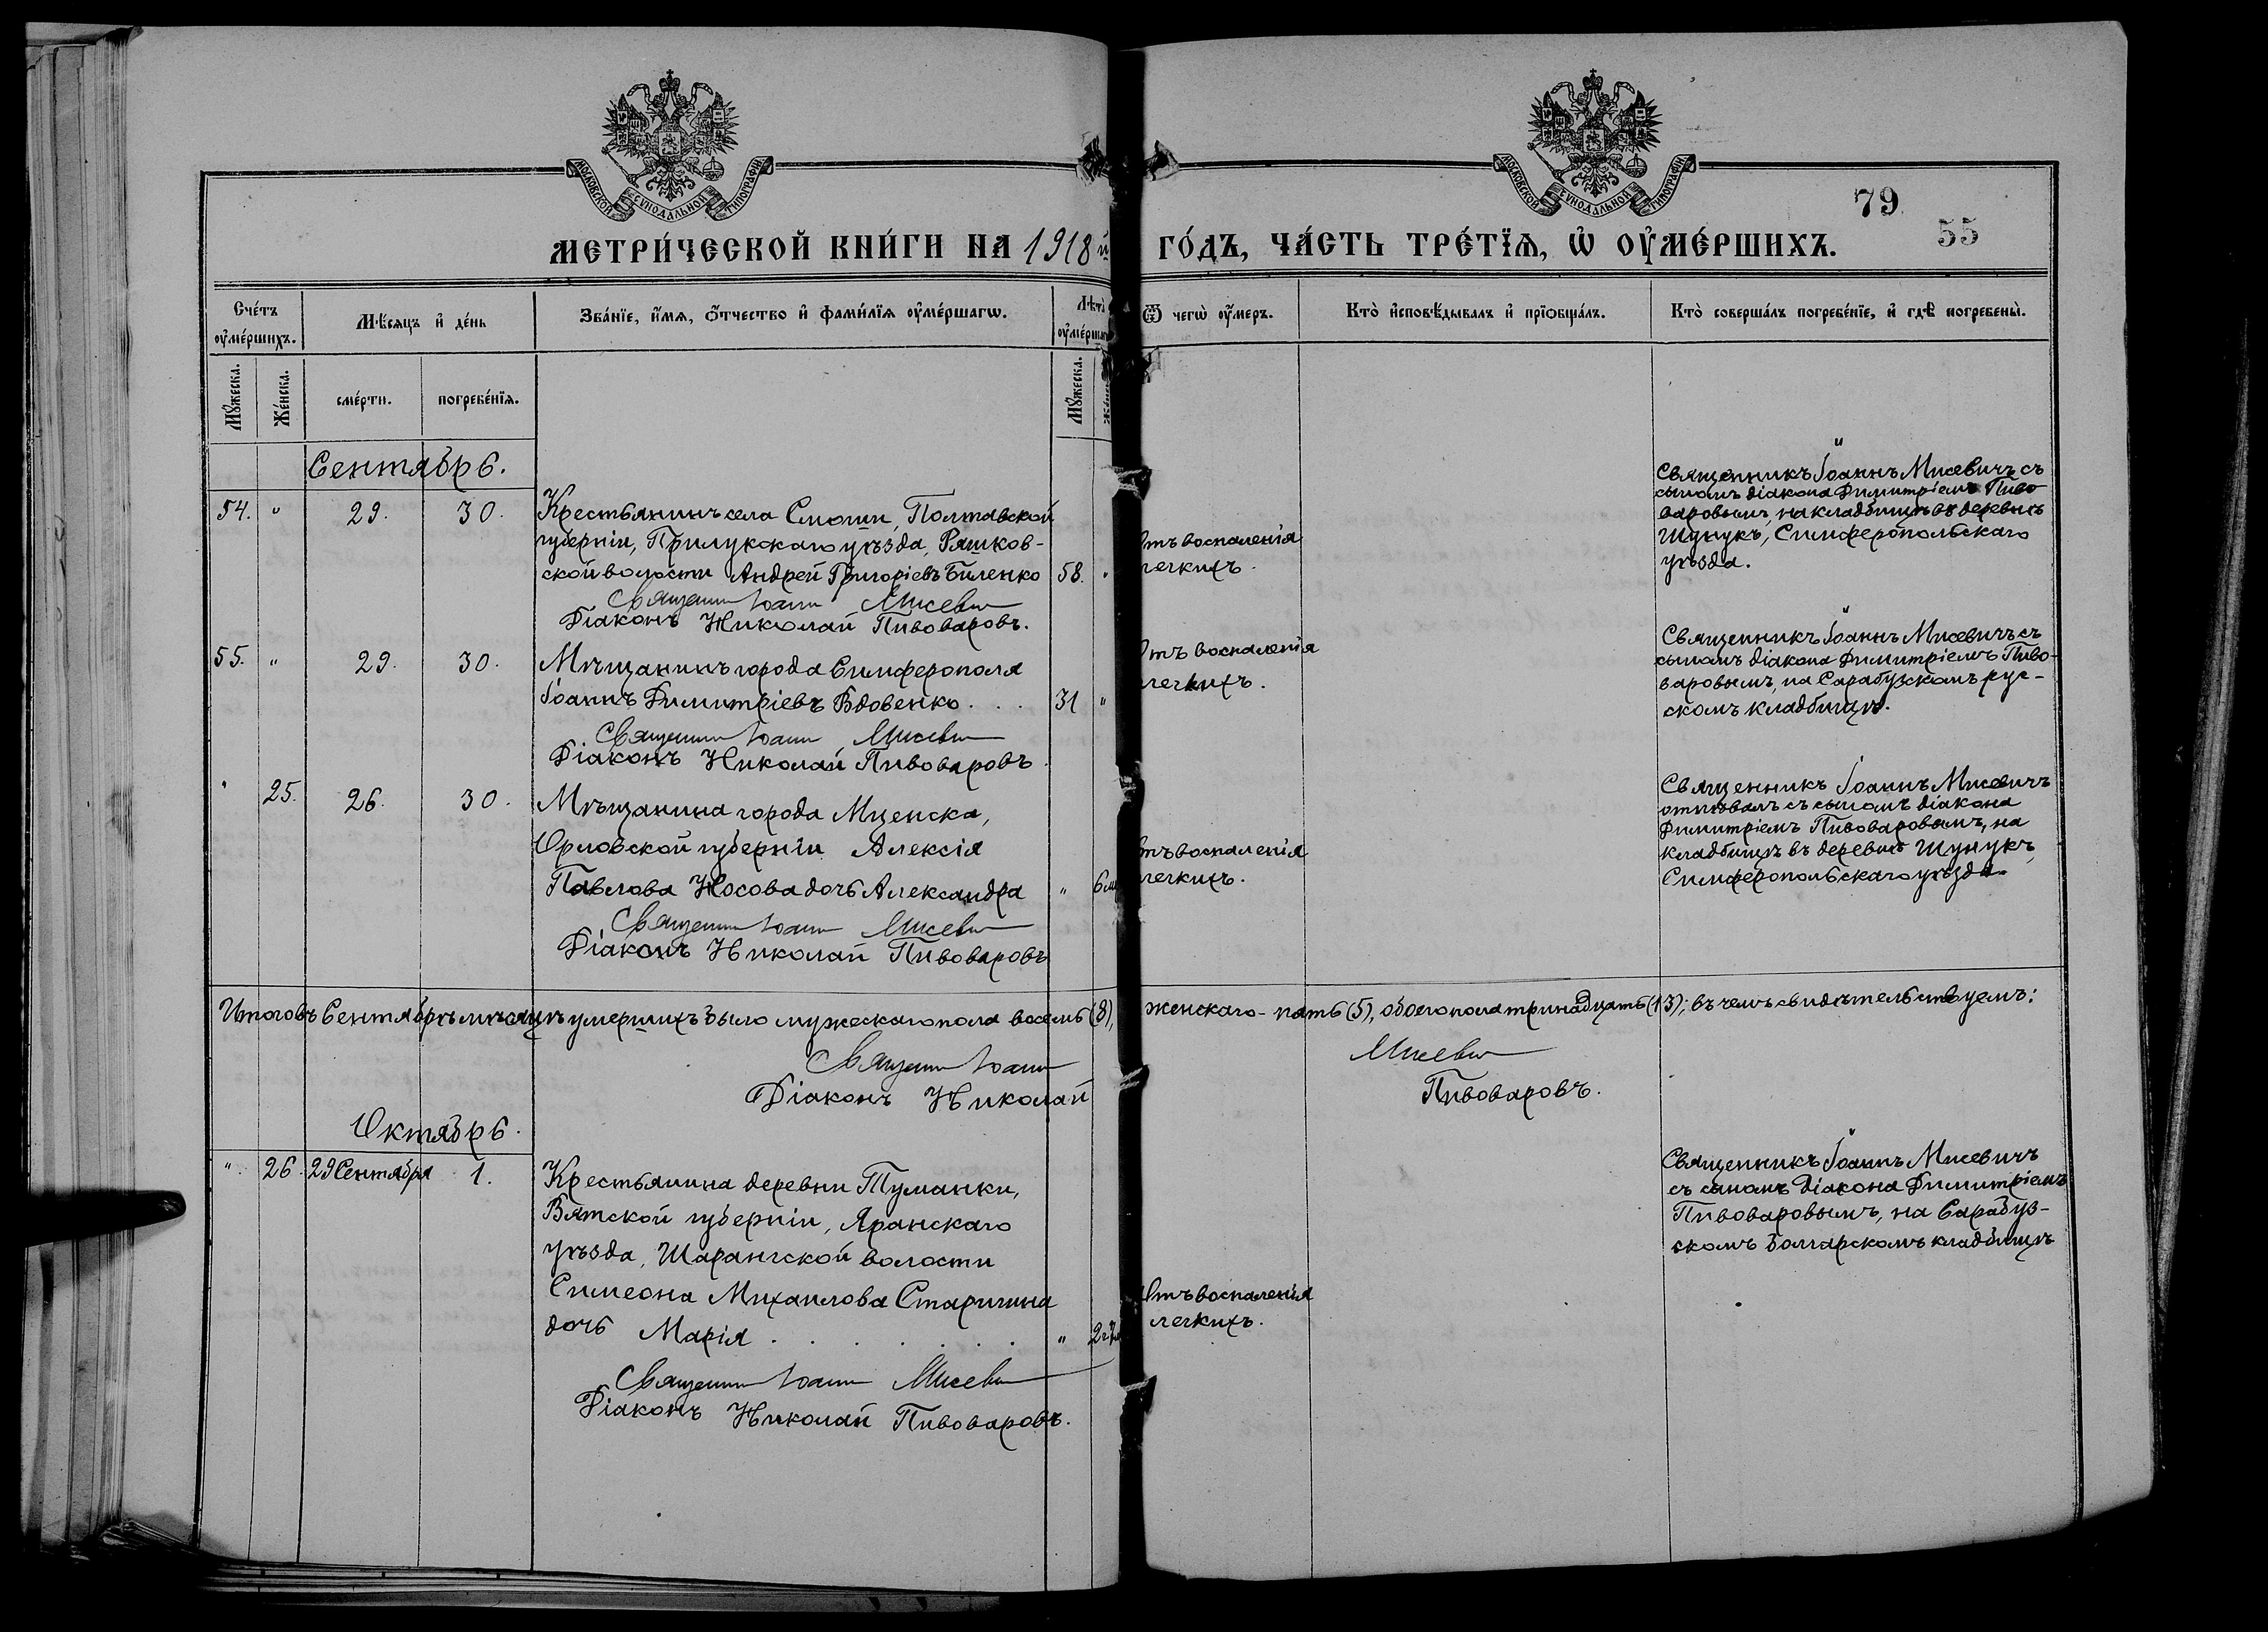 МОСКОВСКОЙ СѴНОДАЛЬНОЙ ТИПОГРАФІИ
МОСКОВСКОЙ СѴНОДАЛЬНОЙ ТИПОГРАФІИ
79
55
МЕТРИ́ЧЕСКОЙ КНИ́ГИ НА 1918 й ГО́ДЪ, ЧА́СТЬ ТРЕ́ТЇѦ, Ѡ҆ ОУ҆МЕ́РШИХЪ.
Сче́тъ оу҆ме́ршихъ.
Мѣ́сяцъ и҆ де́нь
Зва́нїе, и҆́мя, ѻ҆́тчество и҆ фами́лїя оу҆ме́ршагѡ.
Лѣта̀ оу҆ме́ршаго
Ѿ чегѡ̀ оу҆́мер.
Кто̀ и҆сповѣ́дывалъ и҆ прїѡбща́лъ.
Кто̀ соверша́лъ погребе́нїе, и҆ гдѣ̀ погребены̀.
Мꙋ́жеска.
Же́нска.
сме́рти.
погребе́нїя.
Мꙋ́жеска.
Сентябрь.
54. " 29. 30.
Крестьянинъ села Смоши, Полтавской
губерніи, Прилукскаго уѣзда, Ряшков-
ской волости Андрей Григоріевъ Биленко 58. "
Священник Іоанн Мисевич
Діаконъ Николай Пивоваровъ.
Отъ воспаленія
легкихъ.
Священникъ Іоаннъ Мисевичъ съ
сыномъ діакона Димитріемъ Пиво-
варовымъ, на кладбищѣ въ деревнѣ
Шунукъ, Симферопольскаго
уѣзда.
55. " 29. 30.
Мѣщанинъ города Симферополя
Іоаннъ Димитріевъ Вдовенко . . . 31 "
Священник Іоанн Мисевич
Діаконъ Николай Пивоваровъ
Отъ воспаленія
легкихъ.
Священникъ Іоаннъ Мисевичъ съ
сыномъ діакона Димитріемъ Пиво-
варовымъ, на Сарабузскомъ рус-
скомъ кладбищѣ.
" 25. 26. 30.
Мѣщанина города Мценска,
Орловской губерніи Алексія
Павлова Носова дочь Александра " 6 м
Священник Іоанн Мисевич
Діаконъ Николай Пивоваровъ
Отъ воспаленія
легкихъ.
Священникъ Іоаннъ Мисевичъ
отпѣвалъ съ сыномъ діакона
Димитріемъ Пивоваровымъ, на
кладбищѣ въ деревнѣ Шунукъ,
Симферопольскаго уѣзда.
Итого въ Сентябрѣ мѣсяцѣ умершихъ было мужескаго пола восемь (8), женскаго - пять (5), обоего пола тринадцать (13); въ чемъ свидѣтельствуемъ:
Священник Іоанн Мисевич
Діаконъ Николай Пивоваровъ.
Октябрь.
" 26. 29 Сентября 1.
Крестьянина деревни Туманки,
Вятской губерніи, Яранскаго
уѣзда, Шарангской волости
Симеона Михаилова Старигина
дочь Марія . . . . . . " 2 г.
Священник Іоанн Мисевич
Діаконъ Николай Пивоваровъ.
Отъ воспаленія
легкихъ.
Священникъ Іоаннъ Мисевичъ
съ сыномъ діакона Димитріемъ
Пивоваровымъ, на Сарабуз-
скомъ болгарскомъ кладбищѣ